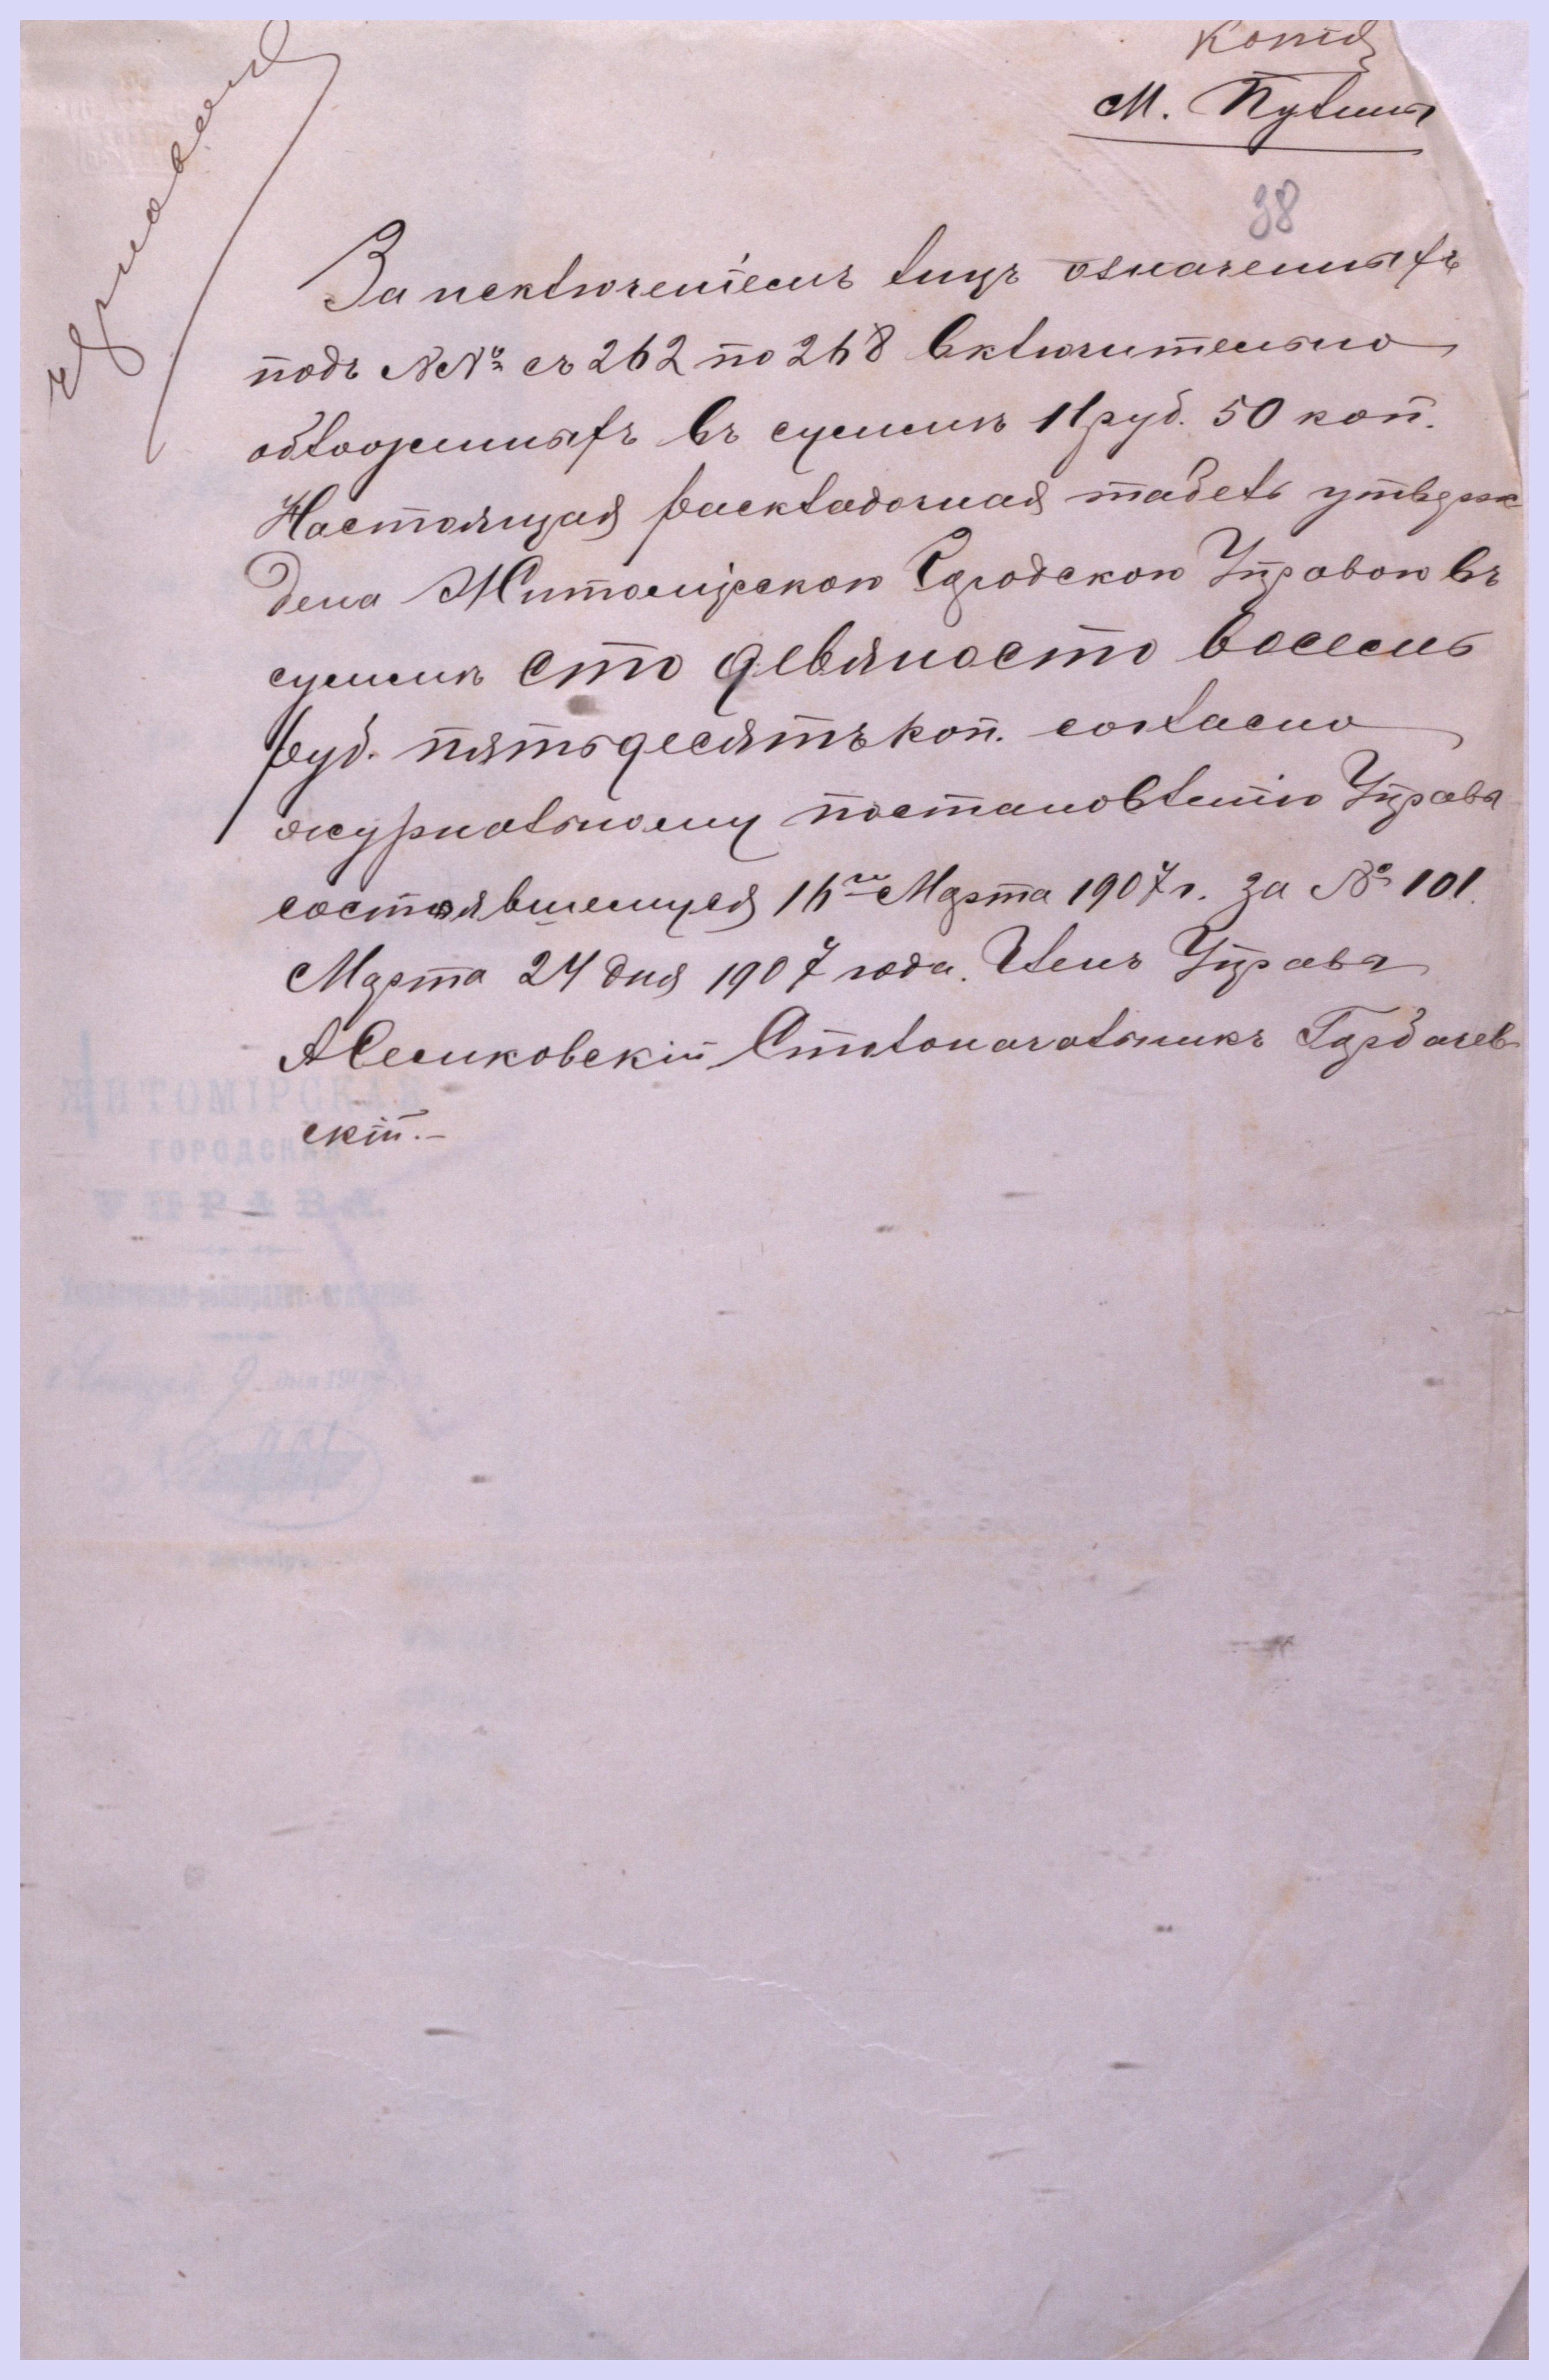 Копія
М. Путины
38
За исключеніемъ лицъ означенныхъ
подъ №№ съ 262 по 268 включительно
обложенныхъ въ суммѣ 11 руб. 50 коп.
Настоящая раскладочная табель утверж
дена Житомірскою Городскою Управою въ
суммѣ сто девяносто восемь
руб. пятьдесятъ коп. согласно
журнальному постановленію Управы
состоявшемуся 16го Марта 1907 г. за № 101.
Марта 24 дня 1907 года. Членъ Управы
А Семковскій Столоначальникъ Гарбачев
скій.-
ЖИТОМІРСКАЯ
ГОРОДСКАЯ
УПРАВА.